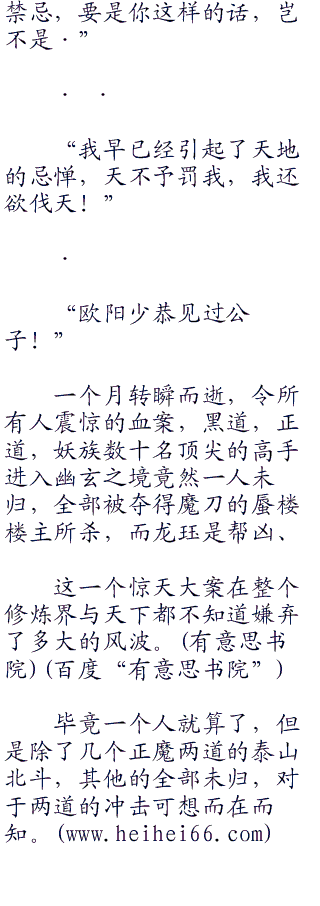 禁忌，要是你这样的话，岂
不是·”
· ·
“我早已经引起了天地
的忌惮，天不予罚我，我还
欲伐天！”
·
“欧阳少恭见过公
子！”
一个月转瞬而逝，令所
有人震惊的血案，黑道，正
道，妖族数十名顶尖的高手
进入幽玄之境竟然一人未
归，全部被夺得魔刀的蜃楼
楼主所杀，而龙珏是帮凶、
这一个惊天大案在整个
修炼界与天下都不知道嫌弃
了多大的风波。(有意思书
院)(百度“有意思书院”)
毕竟一个人就算了，但
是除了几个正魔两道的泰山
北斗，其他的全部未归，对
于两道的冲击可想而在而
知。(www.heihei66.com)